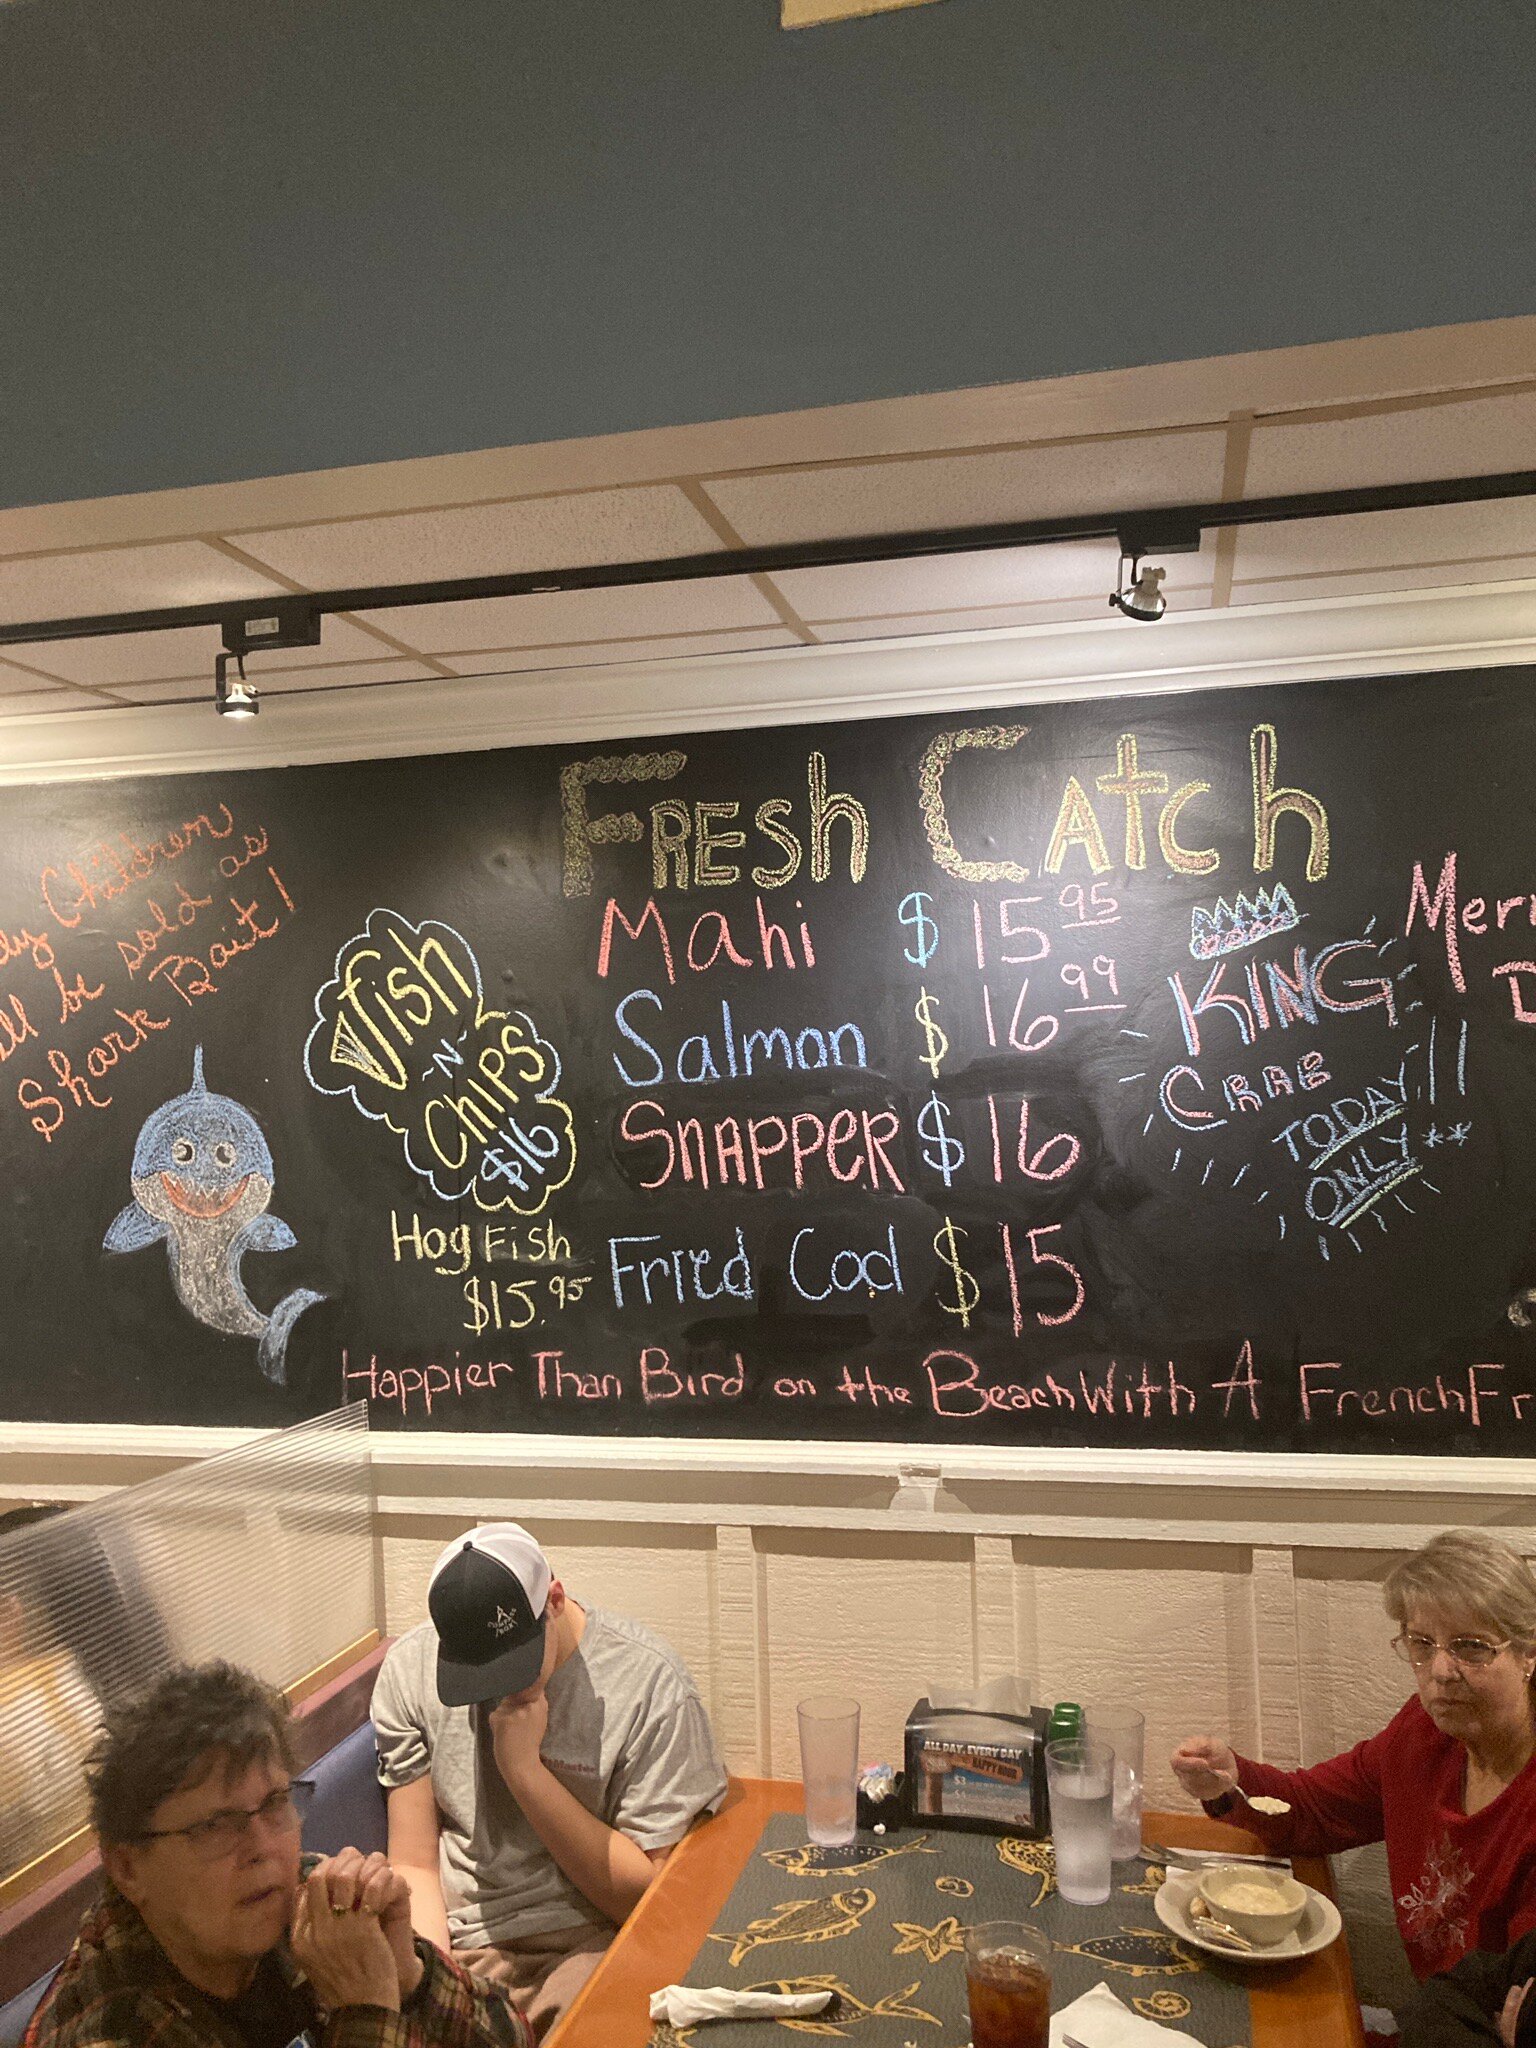 Children
ll be sold as
Shark Bait!
FRESh CAtch
Mahi $15.95
Salmon $16.99
SNAPPER $16
Fried Cod $15
fish
~N~
ChIPS
$16
Hog Fish
$15.95
KING
CRAB
TODAY!!
ONLY**
Happier Than Bird on the Beach With A French
ALL DAY, EVERY DAY
HAPPY HOUR
$3